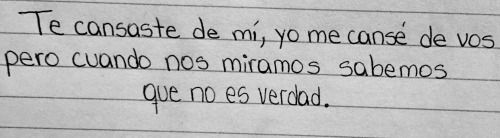 Te cansaste de mí, yo me cansé de vos
pero cuando nos miramos sabemos
que no es verdad.